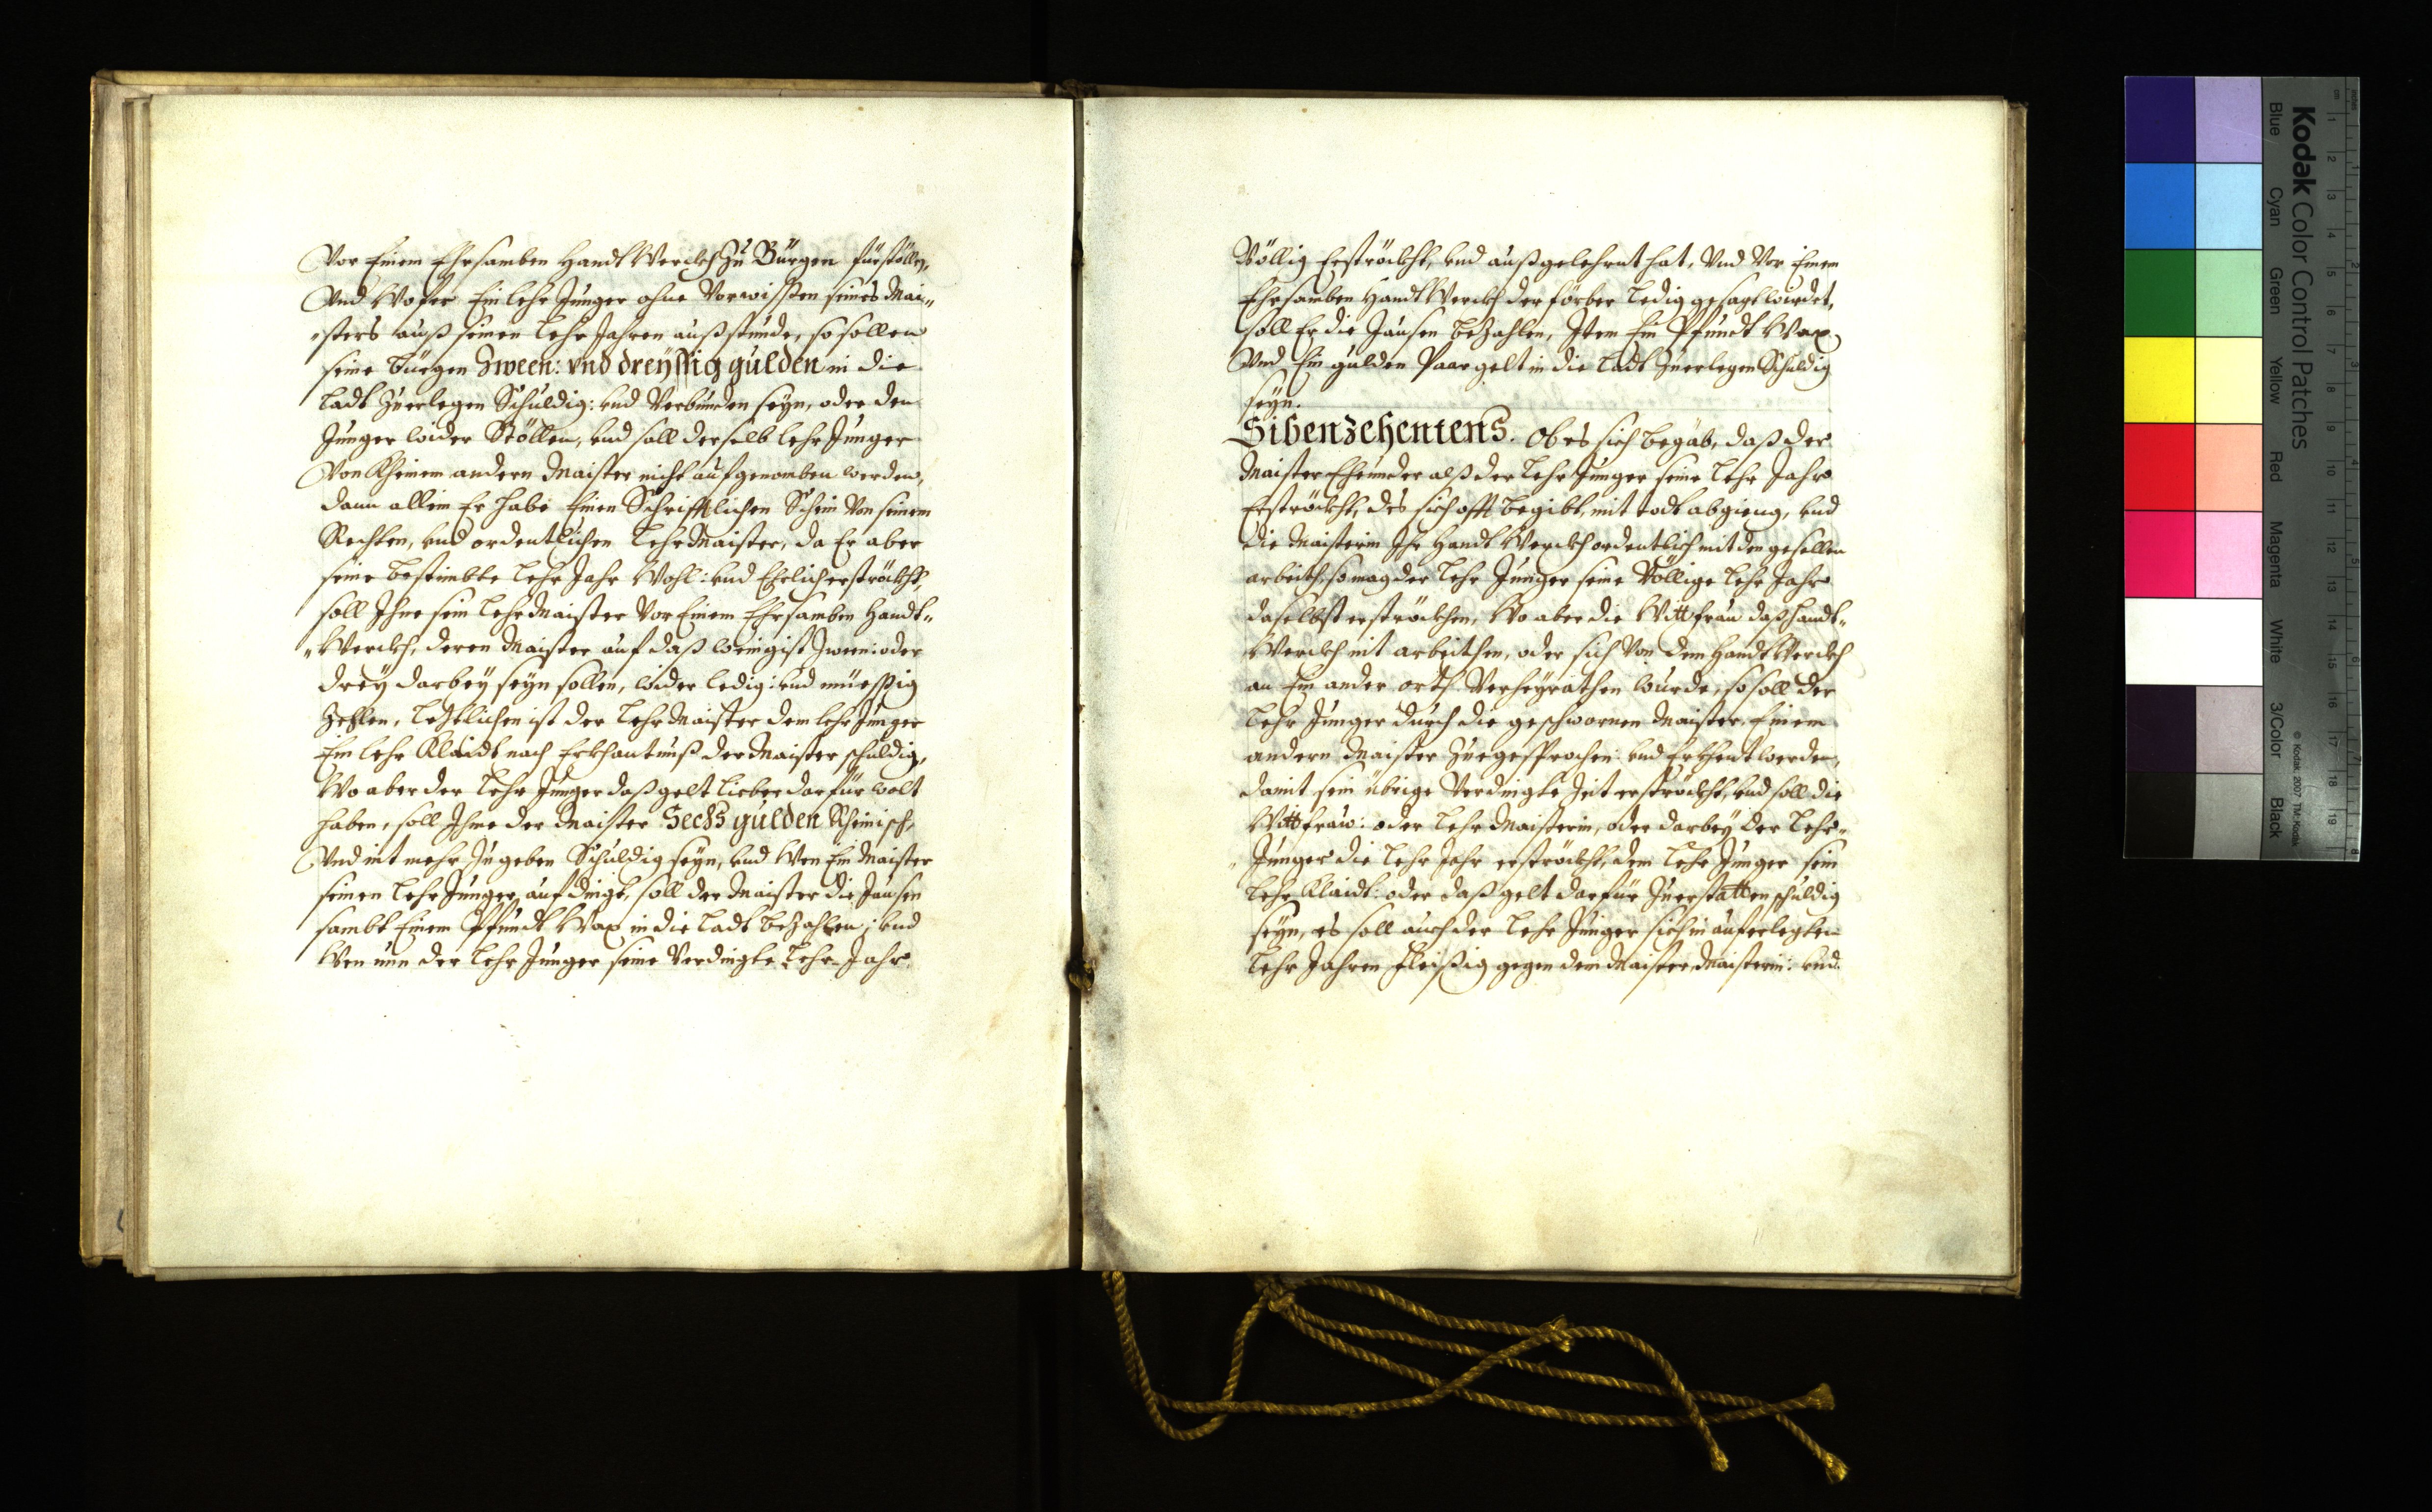 Vor Einem Ehrsamben Handt Werckh Zu Bürgen fürstöllen,
Vnd Wofer Ein lehr Junger ohne Vorwissen seines Mai„
„sters auß seinen lehr Jahren außstunde, so sollen
seine bürgen Zween: vnd dreÿssig gulden in die
ladt Zuerlegen Schuldig: vnd Verbunden seÿn, oder den
Junger wider Stöllen, vnd soll derselb lehr Junger
Von Kheinem andern Maister nicht aufgenomben werden,
dann allein Er habe Einen Schrifftlichen Schein Von seinem
Rechten, vnd ordentlichen lehr Maister, da Er aber
seine bestimbte lehr Jahr Wohl: vnd Ehrlich erströckht,
soll Ihne sein lehr Maister Vor Einem Ehrsamben Handt„
„Werckh, deren Maister auf daß wenigist Zween: oder
dreÿ darbeÿ seÿn sollen, wider ledig: vnd müessig
Zehlen, letztlichen ist der lehr Maister dem lehr Junger
Ein lehr Klaidt nach Erkhantnuß der Maister schuldig,
Wo aber der lehr Junger daß gelt lieber darfür wolt
haben, soll Ihme der Maister Sechs gulden Rheinisch,
Vnd nit mehr Zugeben Schuldig seÿn, vnd Wen Ein Maister
seinen lehr Junger aufdingt, soll der Maister die Jausen
sambt Einem Pfundt Wax in die ladt bezahlen; vnd
Wen nun der lehr Junger seine Verdingte lehr Jahr
Völlig Erströckht, vnd außgelehrnt hat, Vnd Vor Einem
Ehrsamben Handt Werckh der förber ledig gesagt wurdet,
soll Er die Jausen bezahlen, Item Ein Pfundt Wax,
Vnd Ein gulden Paargelt in die ladt Zuerlegen Schuldig
seÿn.
Sibenzehentens. Ob es sich begäb, daß der
Maister Ehrunder alß der lehr Junger seine lehr Jahr
Erströckht, des sich offt begibt, mit todt abgieng, vnd
die Maisterin Ihr Handt Werckh ordentlich mit den gesellen
arbeith, so mag der lehr Junger seine Völlige lehr Jahr
daselbst erströckhen, Wo aber die Wittfrau daß handt„
Werckh nit arbeithen, oder sich Von dem Handt Werckh
an Ein ander orth Verheÿrathen wurde, so soll der
lehr Junger durch die geschwornen Maister Einem
andern Maister Zuegesprochen: vnd Erkhent werden,
damit sein übrige Verdingte Zeit erströckht, vnd soll die
Wittfraw: oder lehr Maisterin, oder darbeÿ der lehr„
„Junger die lehr Jahr erströckht, dem lehr Junger sein
lehr Klaidt: oder daß gelt darfür Zuerstatten schuldig
seÿn, es soll auch der lehr Junger sich in auferlegten
lehr Jahren fleißig gegen dem Maister, Maisterin: vnd
Kodak Color Control Patches
© Kodak 2007 TM: Kodak
Blue Cyan Green Yellow Red Magenta White 3/Color Black